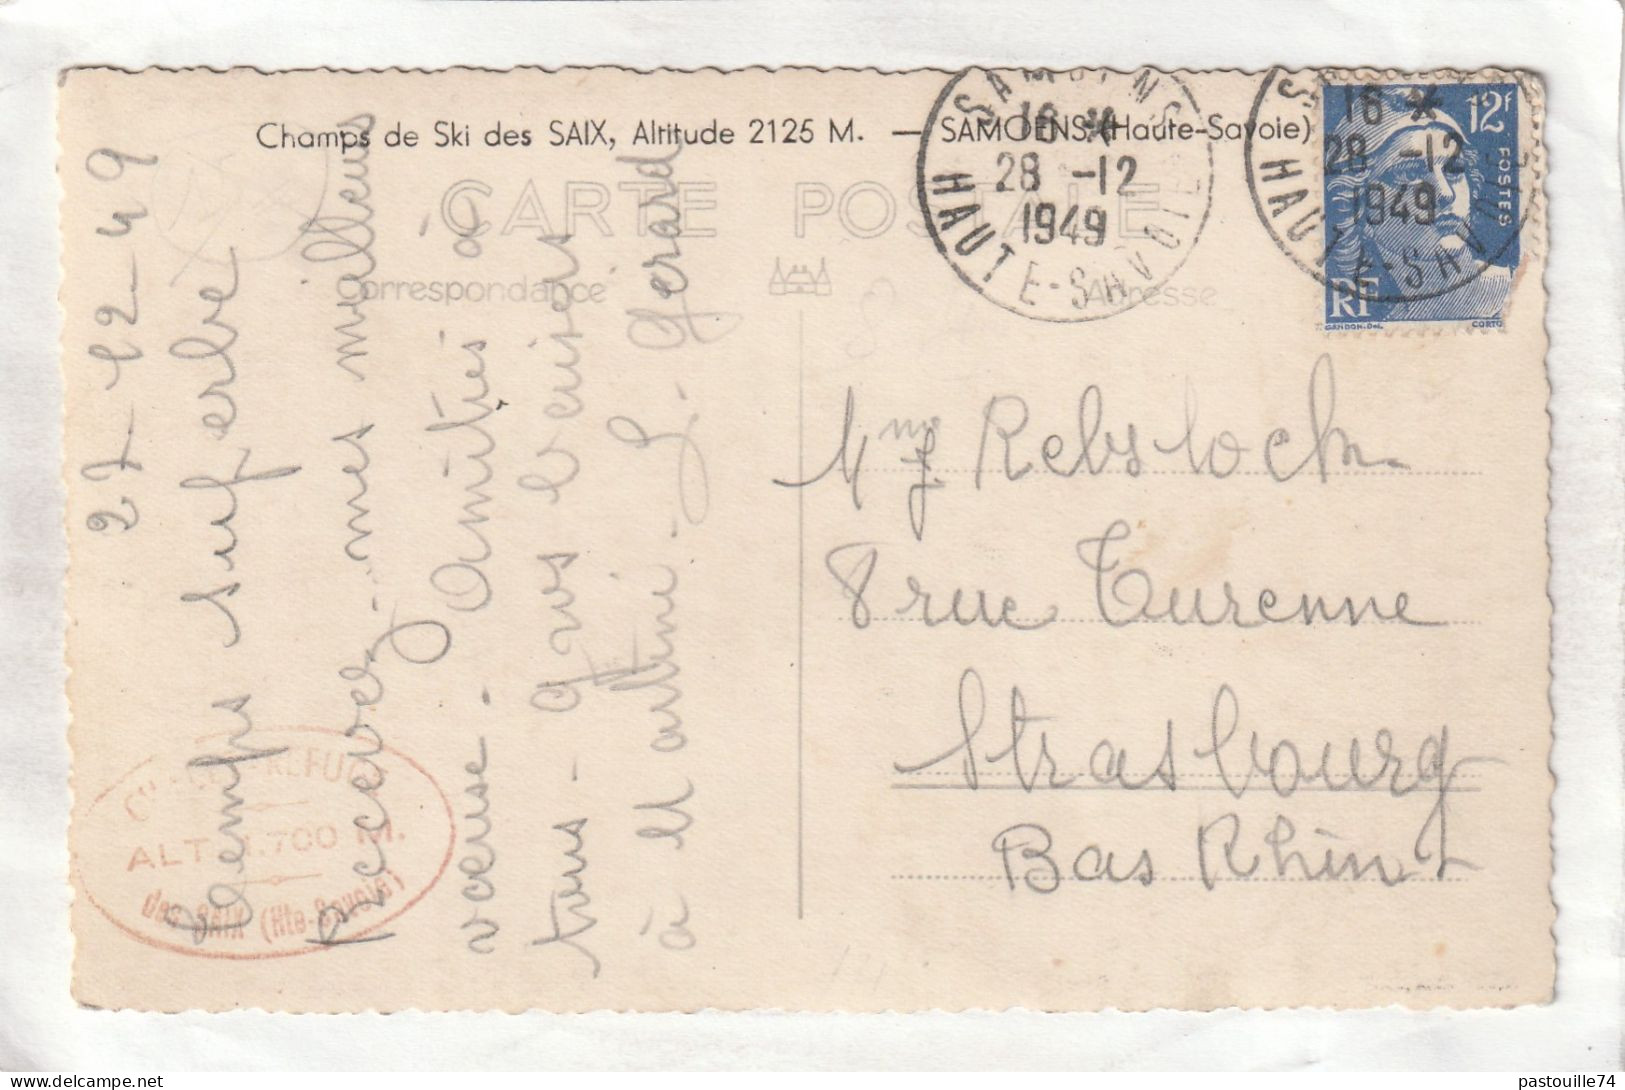 Champs de Ski des SAIX, Altitude 2125 M. — SAMOENS (Haute-Savoie)
CARTE POSTALE
Correspondance
Adresse
SAMOENS
16 *
28 -12
1949
HAUTE-SAVOIE
16 *
28 -12
1949
HAUTE-SAVOIE
12F
POSTES
RF
GANDON.Del.
CORTO
27-12-49
Temps superbe
Recevez mes meilleurs
voeux. Amitiés à
tous - gros baisers
à
G. Gérard
Mme Rebstock
8 rue Turenne
Strasbourg
Bas Rhin
REFUGE
ALT. 1.700 M.
des SAIX (Hte-Savoie)
delcampe.net
pastouille74